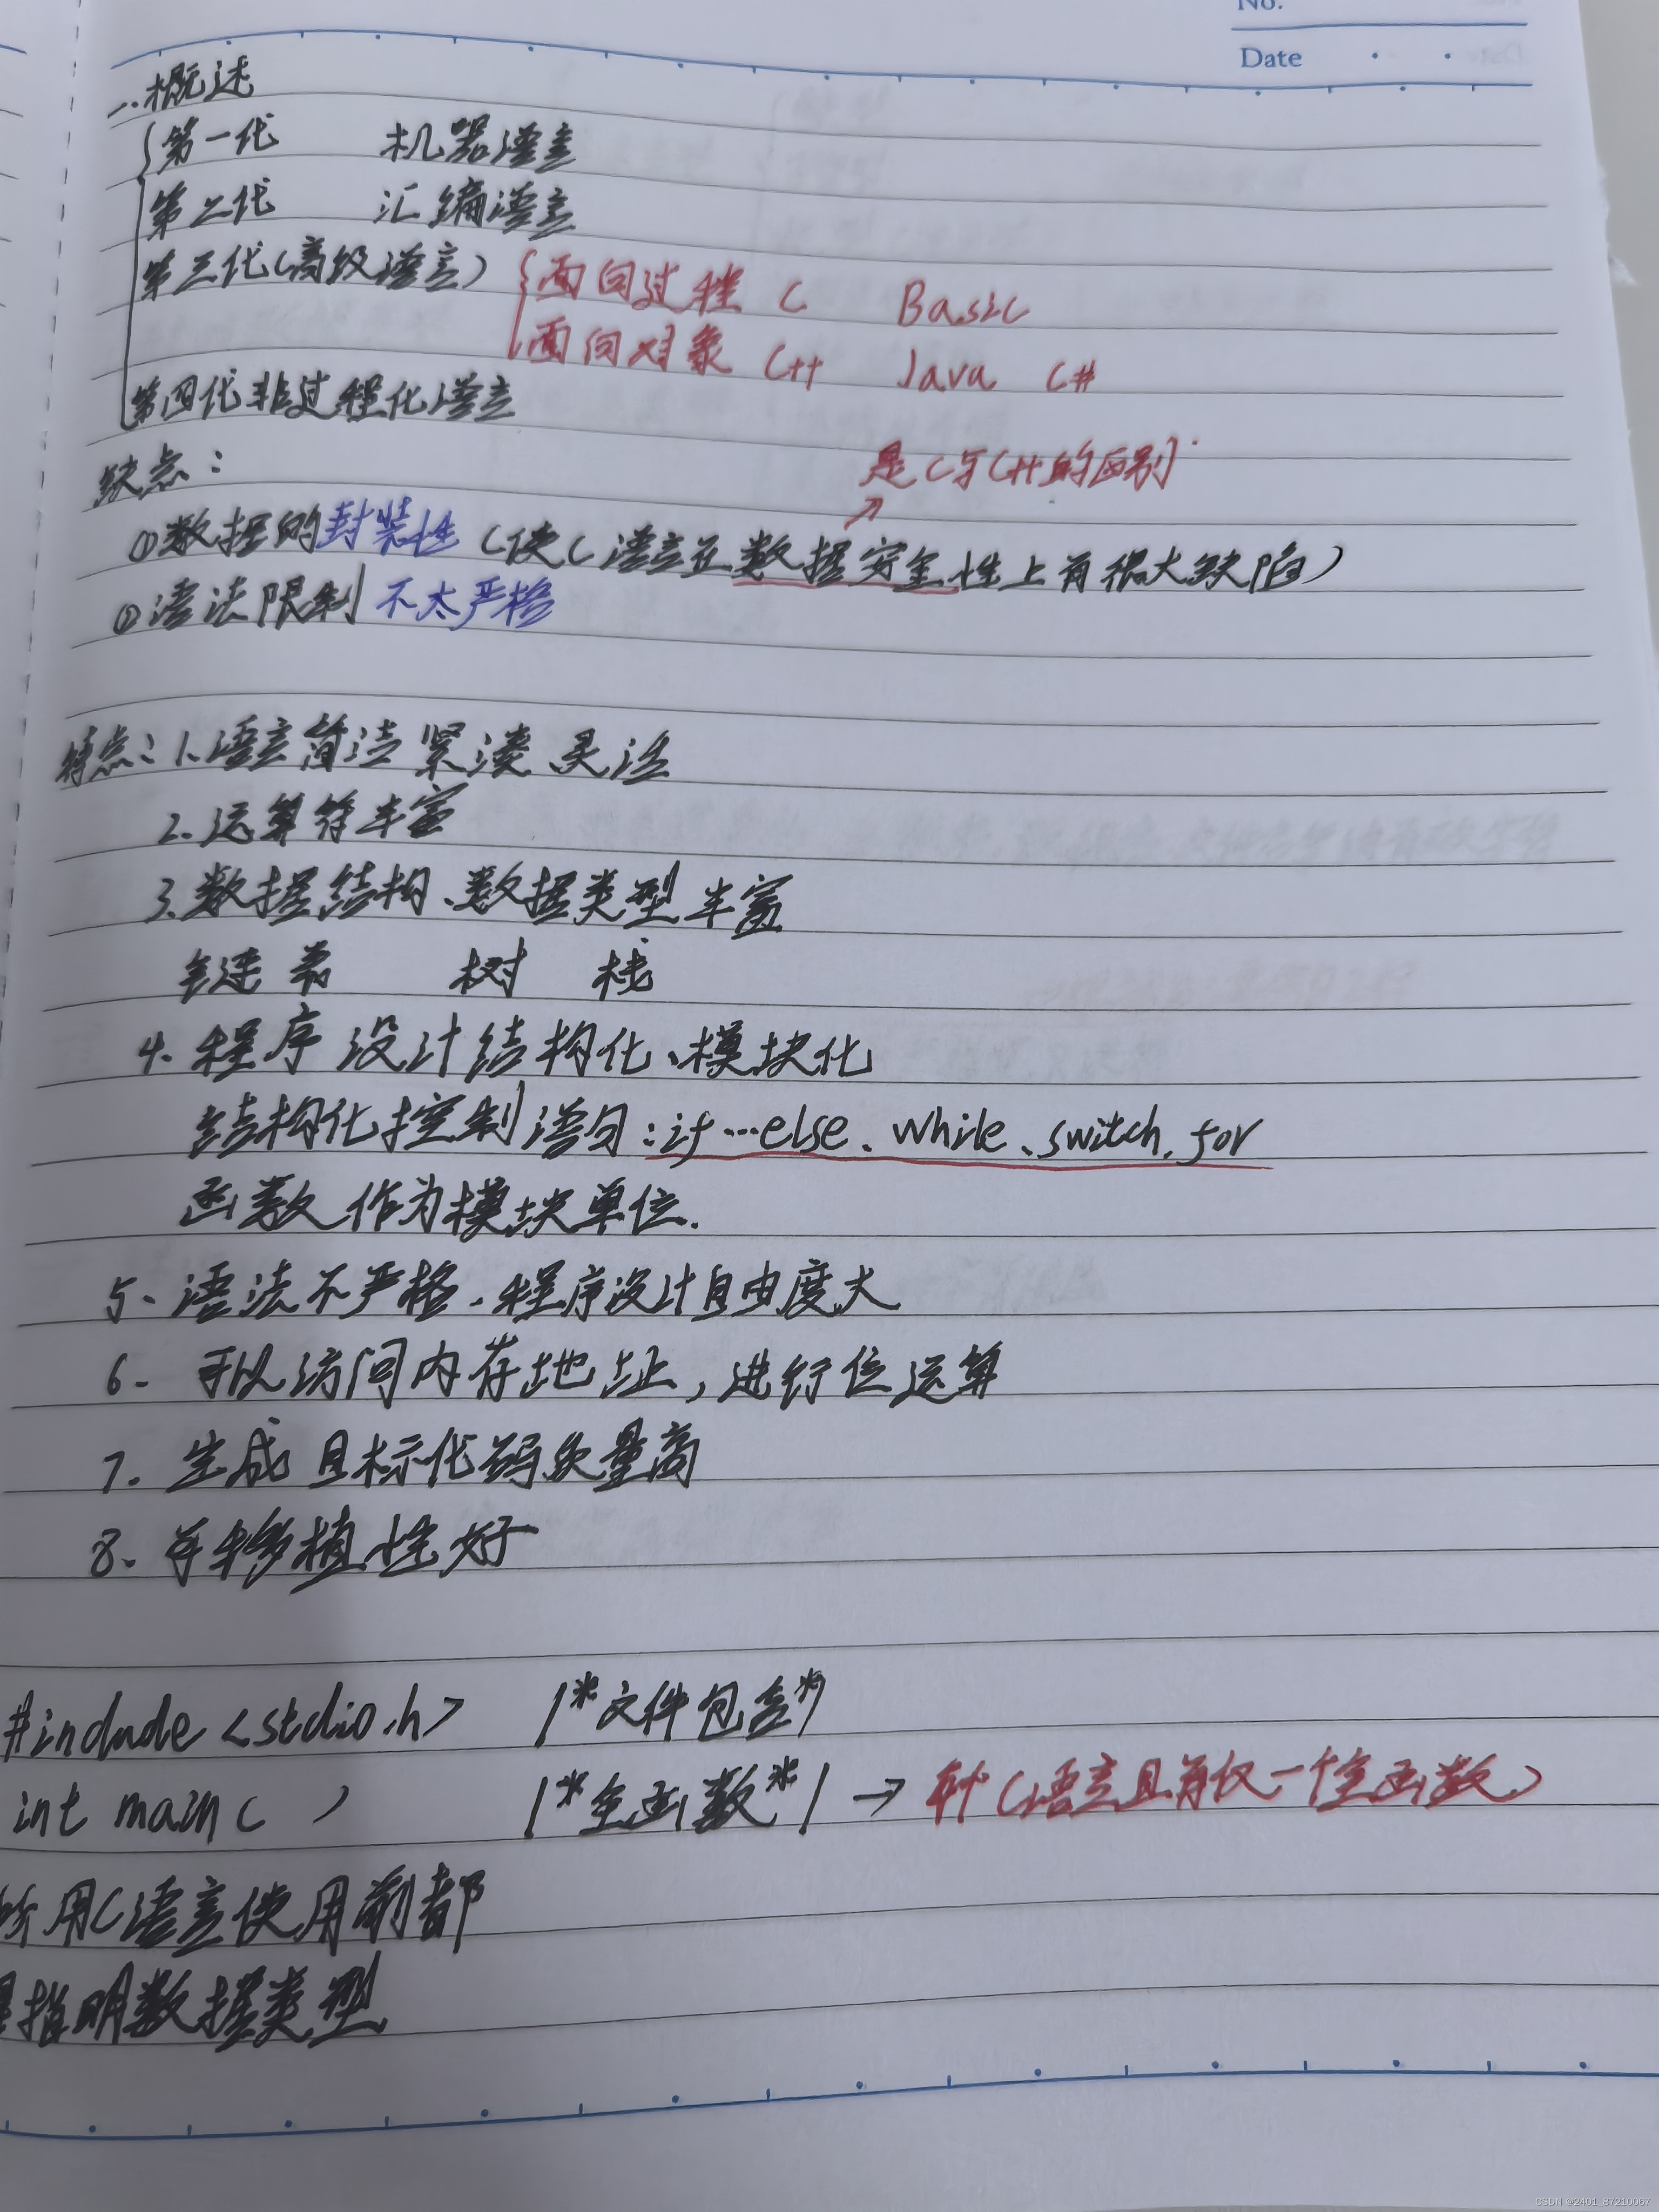 No.
Date
一.概述
第一代 机器语言
第二代 汇编语言
第三代(高级语言) 面向过程 C Basic
面向对象 C++ Java C#
第四代 非过程化语言
缺点:
是C与C++的区别
①数据的封装性 (使C语言在数据安全性上有很大缺陷)
②语法限制不太严格
特点:1.语言简洁 紧凑 灵活
2.运算符丰富
3.数据结构、数据类型丰富
链表 树 栈
4.程序设计结构化、模块化
结构化控制语句:if…else、while、switch、for
函数作为模块单位.
5、语法不严格、程序设计自由度大
6、可以访问内存地址,进行位运算
7.生成目标代码质量高
8、可移植性好
#include <stdio.h> /*文件包含*/
int main( ) /*主函数*/ → C语言且有仅一个主函数)
用C语言使用前都
指明数据类型
CSDN @2401_87210067